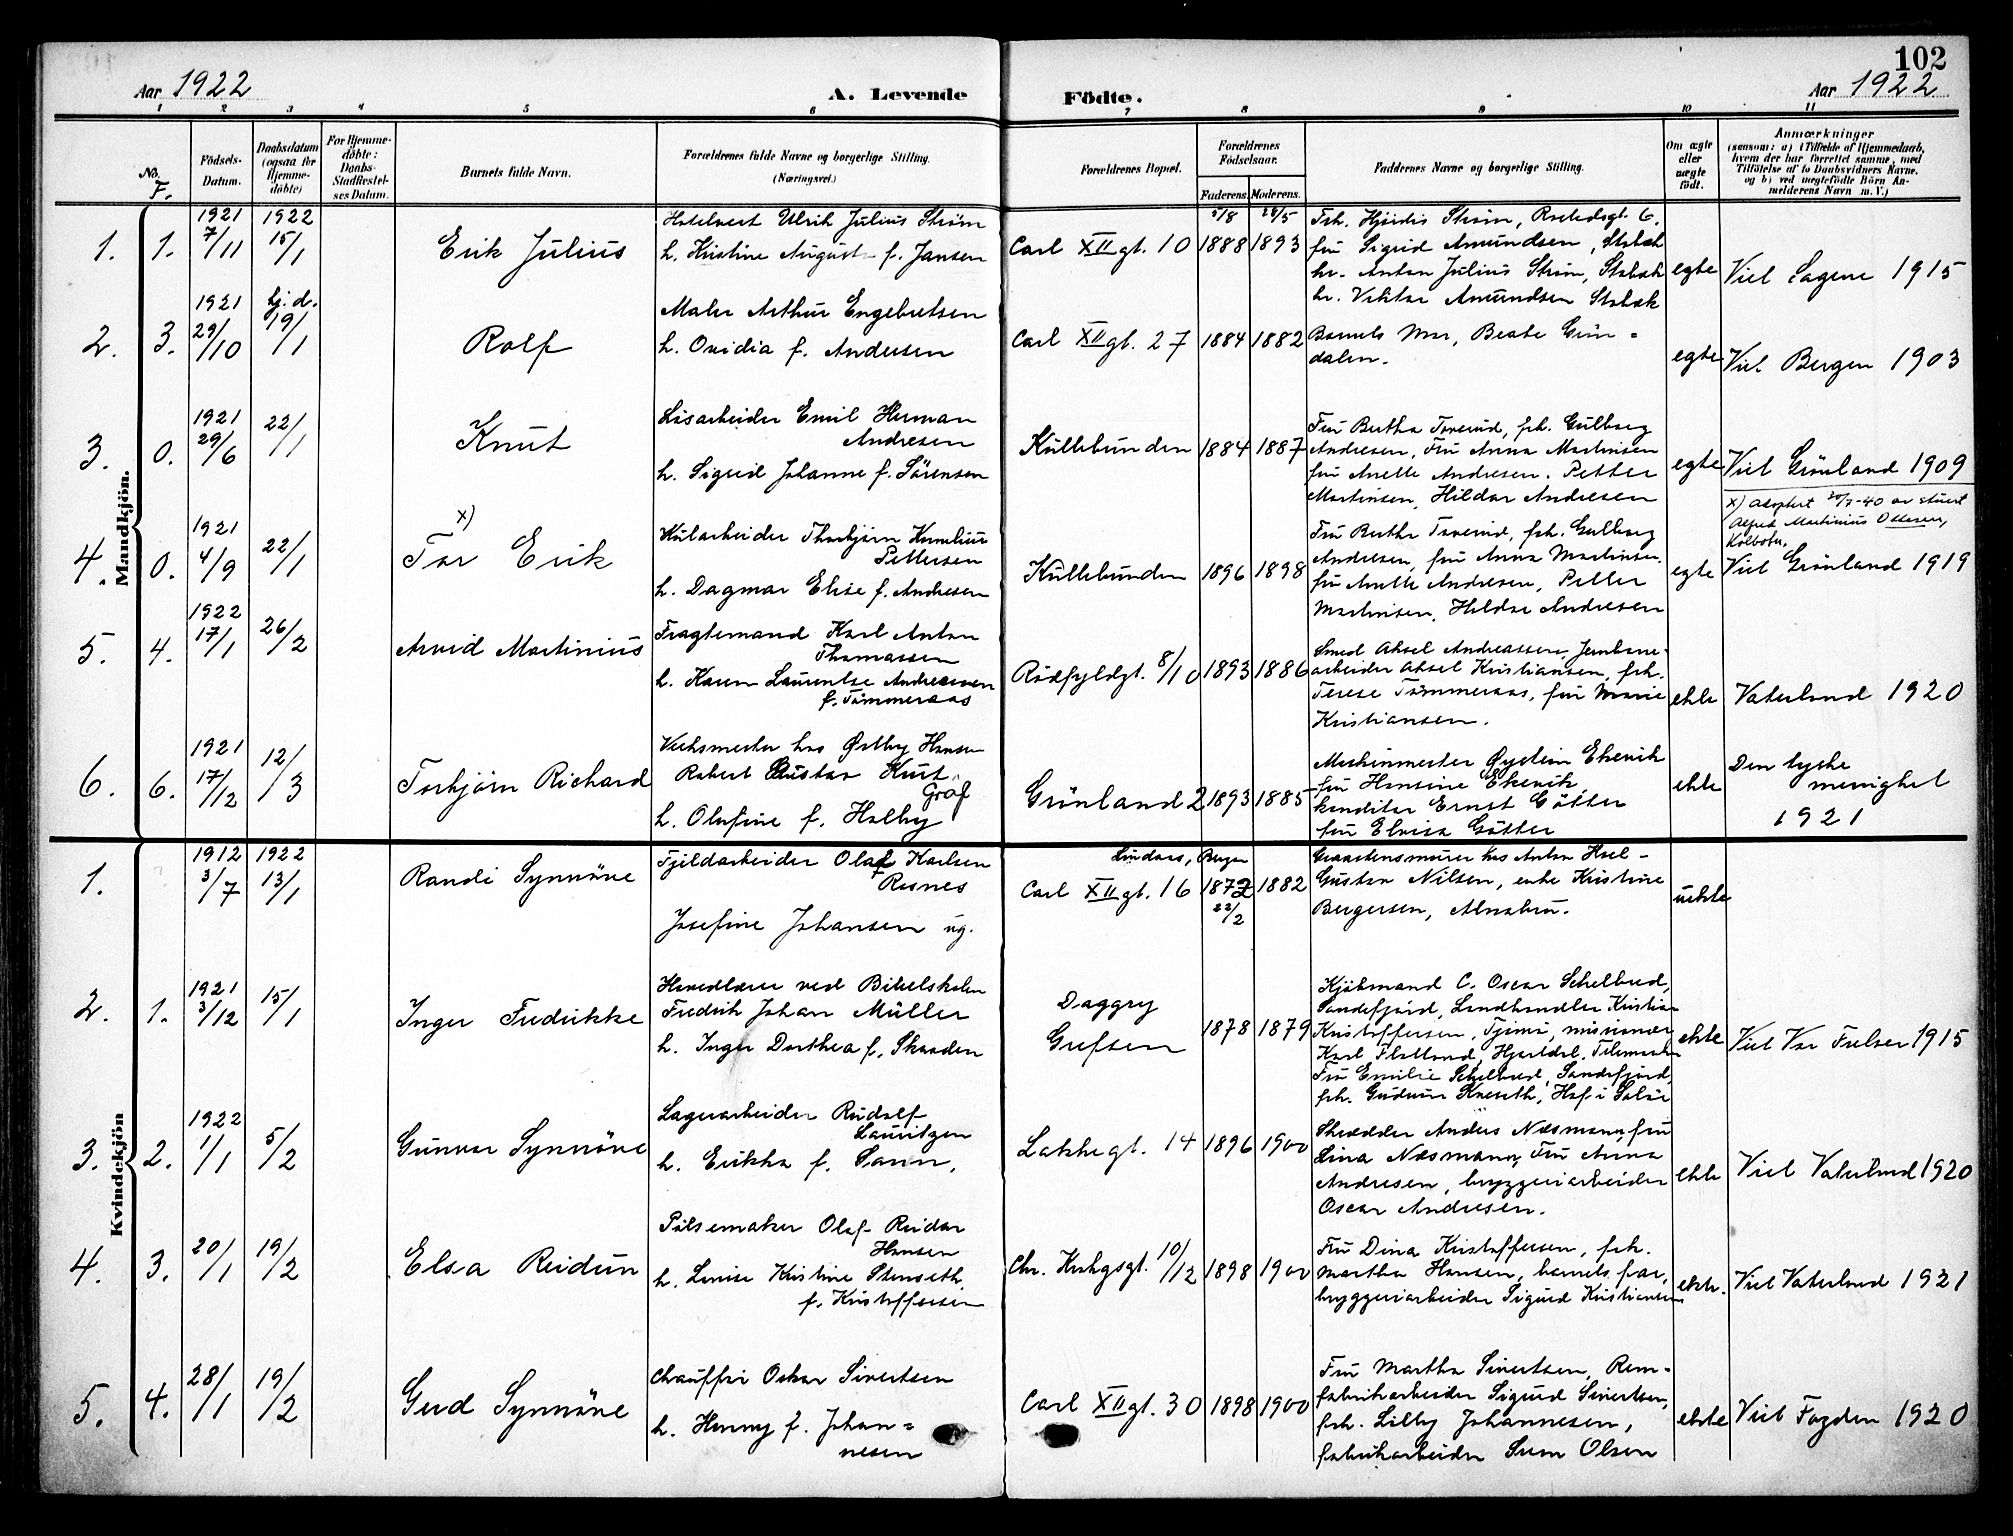 102
Aar 1922
A. Levende
Födte.
Aar 1922.
1 2 3 4 5 6 7 8 9 10 11
No.
F.
Födsels-Datum.
Daabsdatum (ogsaa for Hjemme-döbte)
For Hjemme-döbte: Daabs-Stadfæstel-ses Datum.
Barnets fulde Navn.
Forældrenes fulde Navne og borgerlige Stilling.
(Næringsvei.)
Forældrenes Bopæl.
Forældrenes Födselsaar.
Faderens. Moderens.
Faddernes Navne og borgerlige Stilling.
Om ægte eller uægte födt.
Anmærkninger
(saasom: a) i Tilfælde af Hjemmedaab, hvem der har forrettet samme, med Tilföielse af to Daabsvidners Navne, og b) ved uægtefödte Börn An-melderens Navn m. V.)
Mandkjön.
1. 1. 1921 7/11 1922 15/1
Erik Julius
Hotelvert Ulrik Julius Ström
h. Kristine August f. Jansen
Carl XII gt. 10
5/8 1888 28/5 1893
Frk. Hjördis Ström, Rosteds gt. 6.
fru Sigrid Amundsen, Stabæk
hr. Anton Julius Ström, Stabæk
hr. Viktor Amundsen Stabæk
egte
Viet Sagene 1915
2. 3. 1921 29/10 hj.d. 19/1
Rolf
Maler Arthur Engebretsen
h. Ovidia f. Andersen
Carl XII gt. 27
1884 1882
Barnets Mor, Beate Grin=
dalen.
egte
Viet Bergen 1903
3. 0. 1921 29/6 22/1
Knut
Lösarbeider Emil Herman
Andresen
h. Sigrid Johanne f. Sörensen
Kullebunden
1884 1887
Fru Bertha Toverud, frk. Gulborg
Andresen, Fru Anna Martinsen
fru Anette Andresen. Petter
Martinsen, Hildar Andresen
egte
Viet Grönland 1909
4. 0. 1921 4/9 22/1
x)
Tor Erik
Kularbeider Thorbjörn Kornelius
Pettersen
h. Dagmar Elise f. Andresen
Kullebunden
1896 1898
Fru Bertha Toverud, frk. Gulborg
Andresen, fru Anna Martinsen.
fru Anette Andresen, Petter
Martinsen, Hildar Andresen
egte
x) Adoptert 20/7-40 av stuert
Alfred Martinius Ottesen,
Kolbotn.
Viet Grönland 1919
5. 4. 1922 17/1 26/2
Arvid Martinius
Fragtemand Karl Anton
Thomassen
h. Karen Laurentse Andreassen
f. Tömmeraas
Rödfyldgt. 8/10
1893 1886
Smed Aksel Andreassen, Jernbane-
arbeider Aksel Kristiansen, frk.
Terese Tömmeraas, fru Marie
Kristiansen.
ekte
Vaterland 1920
6. 6. 1921 17/12 12/3
Torbjörn Richard
Verksmester hos Østby Hansen
Robert Gustav Kurt
Graf
h. Olufine f. Holby
Grönland 2
1893 1885
Maskinmester Øystein Ekevik
fru Hansine Ekevik,
konditor Ernst Götter
fru Elvira Götter
ekte
Den tyske
menighet
1921
Kvindekjön
1. 1912 3/7 1922 13/1
Randi Synnöve
Fjeldarbeider Olaf Karlsen
Risnes
Josefine Johansen ug.
Lindaas, Bergen
Carl XII gt. 16
1872 22/2 1882
Graastensmurer hos Anton Hoel-
Gustav Nilsen, enke Kristine
Bergersen, Alnabru.
uekte
2. 1. 1921 3/12 15/1
Inger Fredrikke
Hovedlærer ved Bibelskolen
Fredrik Johan Müller
h. Inger Dorthea f. Skaaden
Daggry
Grefsen
1878 1879
Kjöbmand C. Oscar Schelbred,
Sandefjord, Landhandler Kristian
Kristoffersen, Tjömö, misionær
Karl Flatland, Hjartdal, Telemarken
Fru Emilie Schelbred, Sandefjord,
frk. Gudrun Kneseth, Hof i Solör
ekte
Viet Vor Frelser 1915
3. 2. 1922 1/1 5/2
Gunvor Synnöve
Lagerarbeider Rudolf
Lauritzen
h. Erikka f. Sann,
Lakkegt. 14
1896 1900
Skrædder Anders Næsmann, fru
Lina Næsmann, Fru Anna
Andresen, bryggeriarbeider
Oscar Andresen.
ekte
Viet Vaterland 1920
4. 3. 20/1 19/2
Elsa Reidun
Pölsemaker Olaf Reidar
Hansen
h. Louise Kristine Stenseth
f. Kristoffersen
Chr. Krohgsgt. 10/12
1898 1900
Fru Dina Kristoffersen, frk.
Martha Hansen, barnets far,
bryggeriarbeider Sigurd Kristiansen
ekte.
Viet Vaterland 1921
5. 4. 28/1 19/2
Gerd Synnöve
Chaufför Oskar Sivertsen
h. Henny f. Johan=
nesen
Carl XII gt. 30
1898 1900
Fru Martha Sivertsen, Rem=
fabrikarbeider Sigurd Sivertsen,
frk. Lilly Johannesen,
fabrikarbeider Sum Olsen
ekte
Viet Fagden 1920